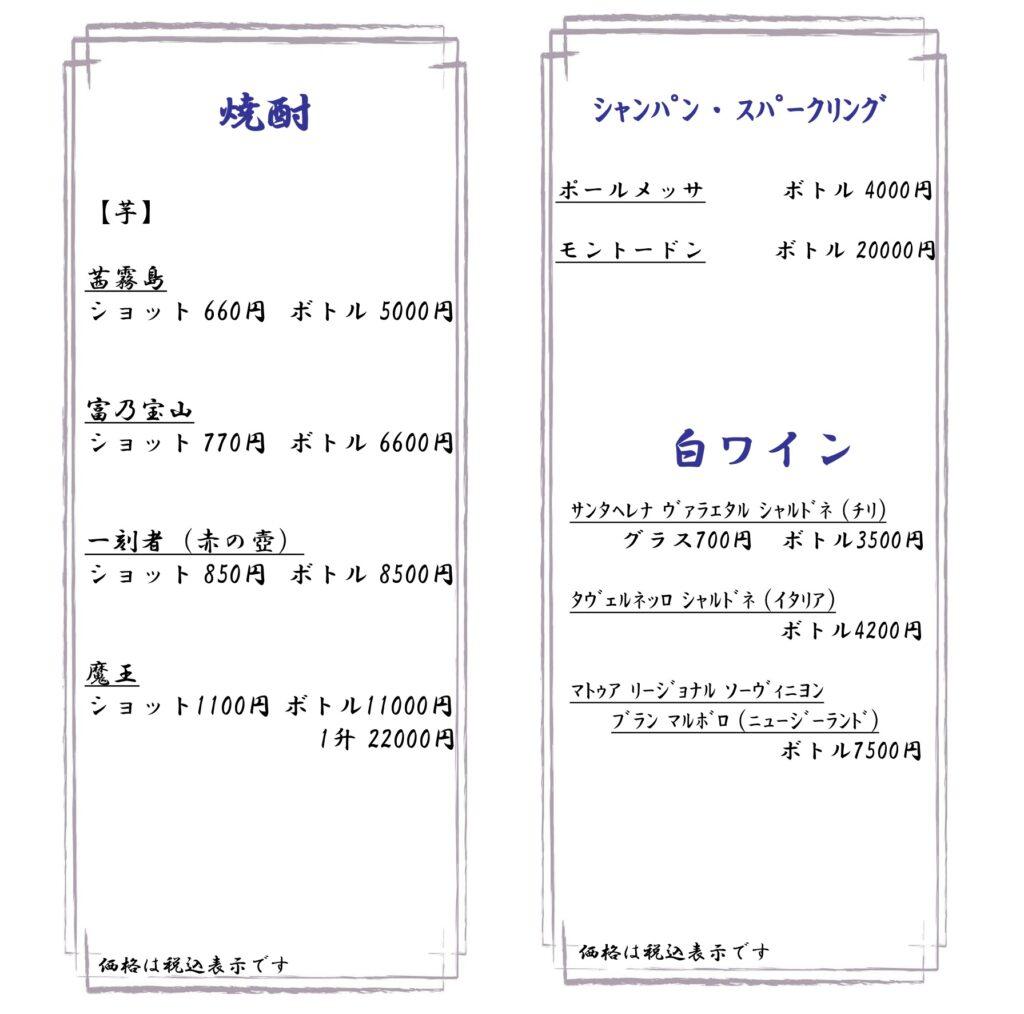 焼酎
【芋】
茜霧島
ショット 660円 ボトル 5000円
富乃宝山
ショット 770円 ボトル 6600円
一刻者（赤の壺）
ショット 850円 ボトル 8500円
魔王
ショット1100円 ボトル11000円
1升 22000円
価格は税込表示です
シャンパン・スパークリング
ポールメッサ ボトル 4000円
モントードン ボトル 20000円
白ワイン
サンタヘレナ ヴァラエタル シャルドネ（チリ）
グラス700円 ボトル3500円
タヴェルネッロ シャルドネ（イタリア）
ボトル4200円
マトゥア リージョナル ソーヴィニヨン
ブラン マルボロ（ニュージーランド）
ボトル7500円
価格は税込表示です